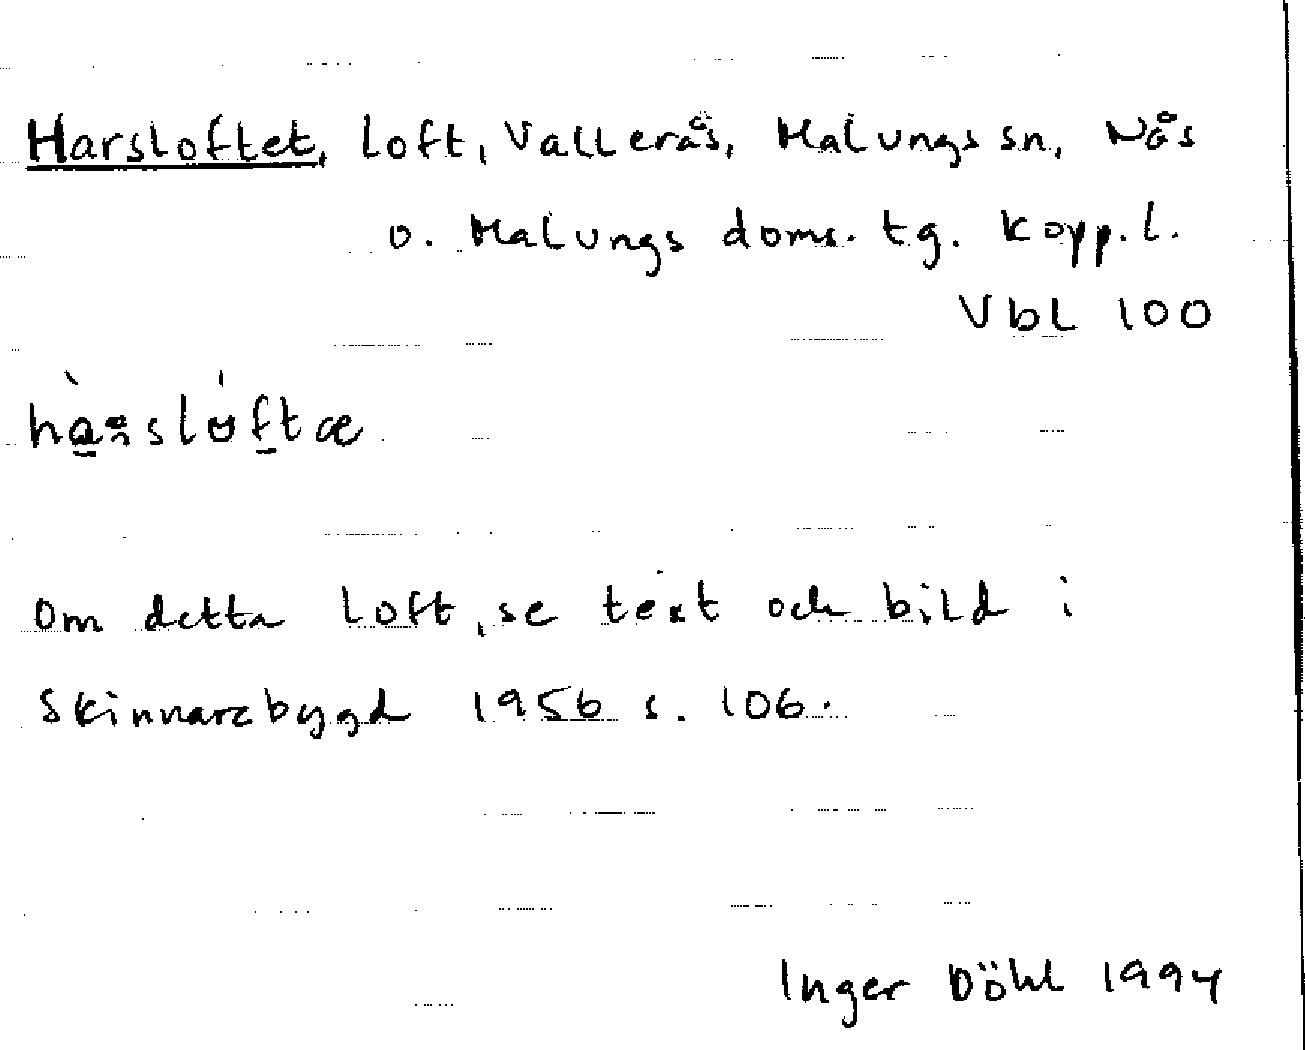 Harsloftet, loft, Vallerås, Malungs sn, Nås
o. Malungs doms. tg. Kopp. l.
Vbl 100
Om detta loft, se text och bild i
Skinnarebygd 1956 s. 106.
Inger Döhl 1994